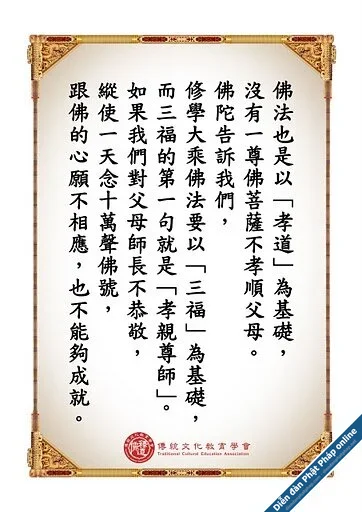 佛法也是以「孝道」為基礎，
沒有一尊佛菩薩不孝順父母。
佛陀告訴我們，
修學大乘佛法要以「三福」為基礎，
而三福的第一句就是「孝親尊師」。
如果我們對父母師長不恭敬，
縱使一天念十萬聲佛號，
跟佛的心願不相應，也不能夠成就。
傳統文化教育學會
Traditional Cultural Education Association
Diễn đàn Phật Pháp online